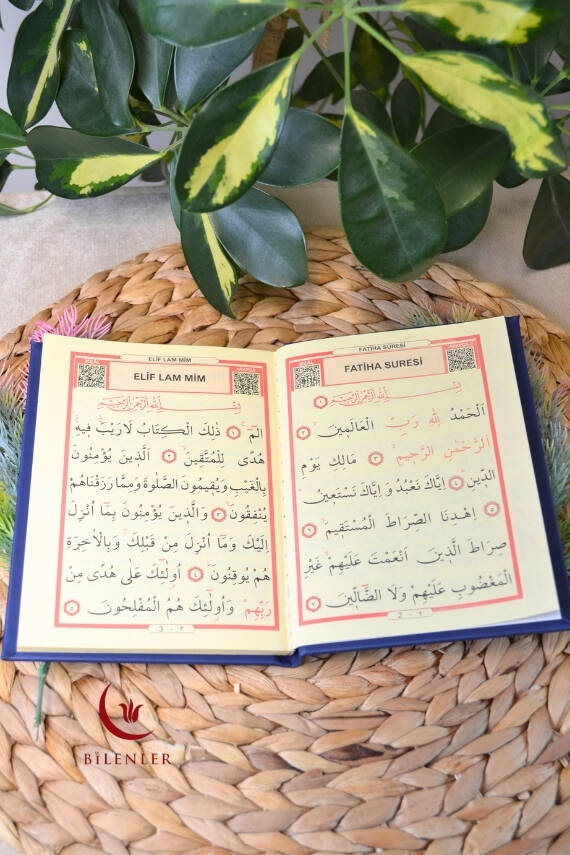 FATİHA SURESİ
MEAL
FATİHA SURESİ
بِسْمِ اللّٰهِ الرَّحْمٰنِ الرَّحِيمِ ١
اَلْحَمْدُ لِلّٰهِ رَبِّ الْعَالَمِينَ ٢
اَلرَّحْمٰنِ الرَّحِيمِ ٣ مَالِكِ يَوْمِ
الدِّينِ ٤ اِيَّاكَ نَعْبُدُ وَ اِيَّاكَ نَسْتَعِينُ
٥ اِهْدِنَا الصِّرَاطَ الْمُسْتَقِيمَ ٦
صِرَاطَ الَّذِينَ اَنْعَمْتَ عَلَيْهِمْ غَيْرِ
الْمَغْضُوبِ عَلَيْهِمْ وَلَا الضَّالِّينَ ٧
2 - ٢
ELİF LAM MİM
MEAL
ELİF LAM MİM
بِسْمِ اللّٰهِ الرَّحْمٰنِ الرَّحِيمِ
الٓمٓ ١ ذٰلِكَ الْكِتَابُ لَا رَيْبَ فِيهِ
هُدًى لِلْمُتَّقِينَ ٢ اَلَّذِينَ يُؤْمِنُونَ
بِالْغَيْبِ وَيُقِيمُونَ الصَّلٰوةَ وَمِمَّا رَزَقْنَاهُمْ
يُنْفِقُونَ ٣ وَالَّذِينَ يُؤْمِنُونَ بِمَٓا اُنْزِلَ
اِلَيْكَ وَمَٓا اُنْزِلَ مِنْ قَبْلِكَ وَبِالْاٰخِرَةِ
هُمْ يُوقِنُونَ ٤ اُولٰٓئِكَ عَلٰى هُدًى مِنْ
رَبِّهِمْ وَاُولٰٓئِكَ هُمُ الْمُفْلِحُونَ ٥
3 - ٣
BİLENLER